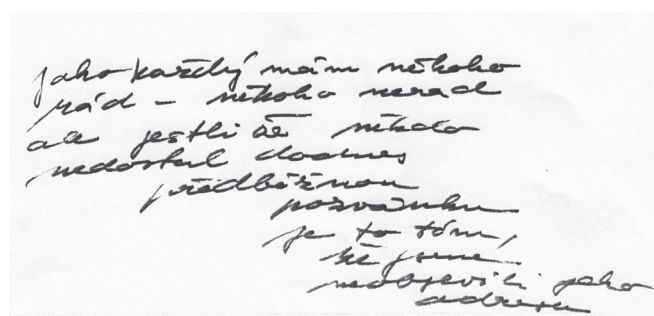 jako každý mám někoho
rád – někoho nerad
ale jestliže někdo
nedostal dodnes
předběžnou
pozvánku
je to tím,
že jsme
neobjevili jeho
adresu